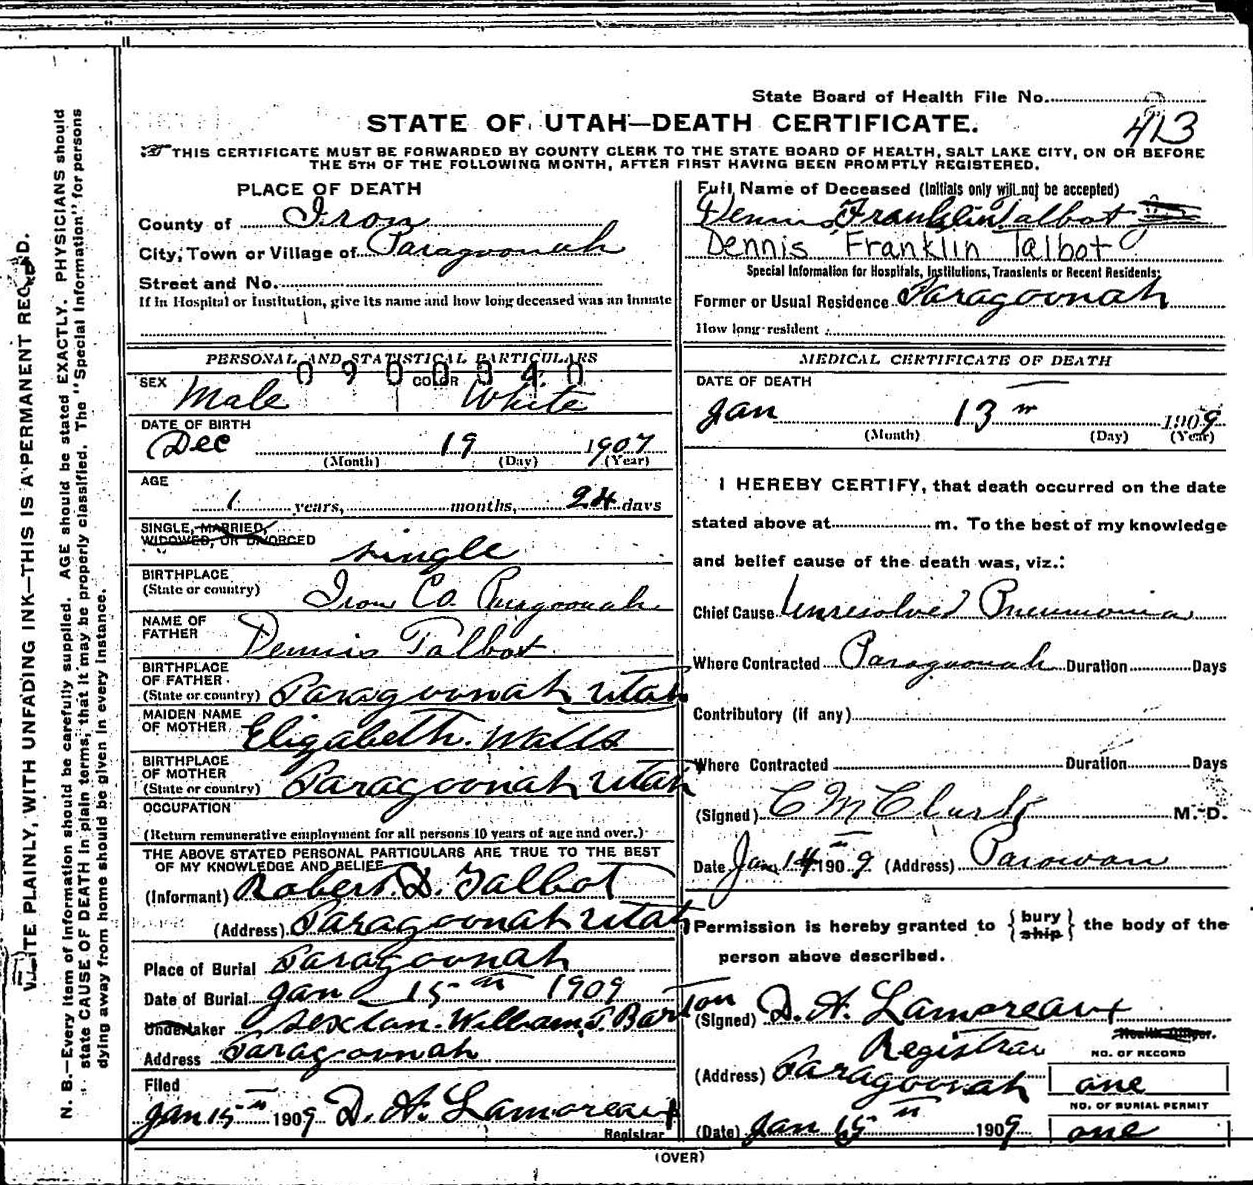 State Board of Health File No.
STATE OF UTAH—DEATH CERTIFICATE.
413
THIS CERTIFICATE MUST BE FORWARDED BY COUNTY CLERK TO THE STATE BOARD OF HEALTH, SALT LAKE CITY, ON OR BEFORE
THE 5TH OF THE FOLLOWING MONTH, AFTER FIRST HAVING BEEN PROMPTLY REGISTERED.
PLACE OF DEATH
County of Iron
City, Town or Village of Paragoonah
Street and No.
If in Hospital or Institution, give its name and how long deceased was an inmate
Full Name of Deceased (Initials only will not be accepted)
Dennis Franklin Talbot
Dennis Franklin Talbot
Special Information for Hospitals, Institutions, Transients or Recent Residents:
Former or Usual Residence Paragoonah
How long resident
PERSONAL AND STATISTICAL PARTICULARS
0900340
SEX Male COLOR White
DATE OF BIRTH
Dec 19 1907
(Month) (Day) (Year)
AGE
1 years, months, 24 days
SINGLE, MARRIED,
WIDOWED, OR DIVORCED single
BIRTHPLACE
(State or country) Iron Co. Paragoonah
NAME OF
FATHER Dennis Talbot
BIRTHPLACE
OF FATHER
(State or country) Paragoonah Utah
MAIDEN NAME
OF MOTHER Elizabeth Watts
BIRTHPLACE
OF MOTHER
(State or country) Paragoonah Utah
OCCUPATION
(Return remunerative employment for all persons 10 years of age and over.)
THE ABOVE STATED PERSONAL PARTICULARS ARE TRUE TO THE BEST
OF MY KNOWLEDGE AND BELIEF
(Informant) Robert D. Talbot
(Address) Paragoonah Utah
Place of Burial Paragoonah
Date of Burial Jan 15th 1909
Undertaker Sexton. William T. Barton
Address Paragoonah
Filed
Jan 15th 1909 D. A. Lamoreaux
Registrar
MEDICAL CERTIFICATE OF DEATH
DATE OF DEATH
Jan 13 1909
(Month) (Day) (Year)
I HEREBY CERTIFY, that death occurred on the date
stated above at m. To the best of my knowledge
and belief cause of the death was, viz.:
Chief Cause Unresolved Pneumonia
Where Contracted Paragoonah Duration Days
Contributory (if any)
Where Contracted Duration Days
(Signed) C M Clark M. D.
Date Jan 14 1909 (Address) Parowan
Permission is hereby granted to { bury ship } the body of the
person above described.
(Signed) D. A. Lamoreaux
Health Officer.
Registrar
(Address) Paragoonah
NO. OF RECORD
one
NO. OF BURIAL PERMIT
(Date) Jan 15th 1909 one
(OVER)
WRITE PLAINLY, WITH UNFADING INK—THIS IS A PERMANENT RECORD.
N. B.—Every item of information should be carefully supplied. AGE should be stated EXACTLY. PHYSICIANS should
state CAUSE OF DEATH in plain terms, that it may be properly classified. The "Special Information" for persons
dying away from home should be given in every instance.